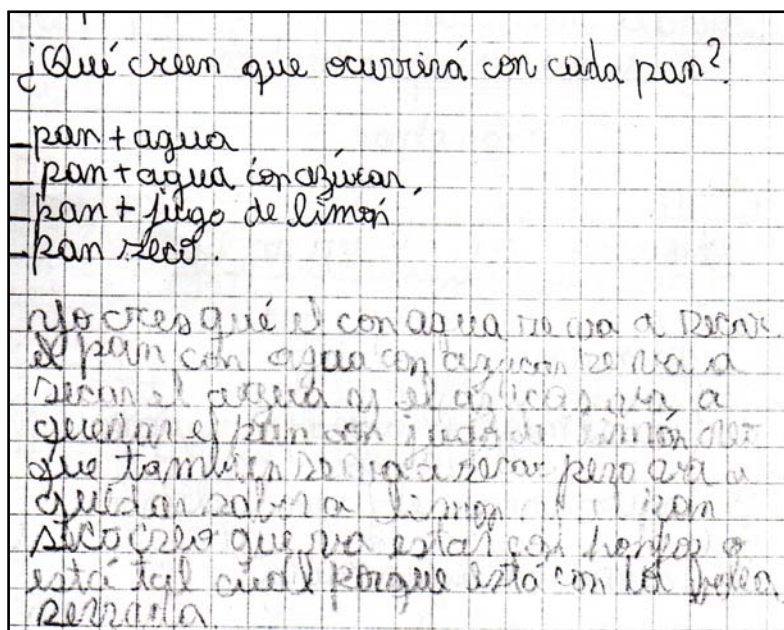 ¿Qué creen que ocurrirá con cada pan?
- pan + agua
- pan + agua con azúcar,
- pan + jugo de limón
- pan seco.
Yo creo qué el con agua se va a secar
el pan con agua con azucar se va a
secar el agua y el azucar va a
quedar el pan con jugo de limón creo
que tambien se va a secar pero va a
quedar sabor a limon el pan
seco creo que va estar con hongos o
está tal cual porque está con la bolsa
serrada.